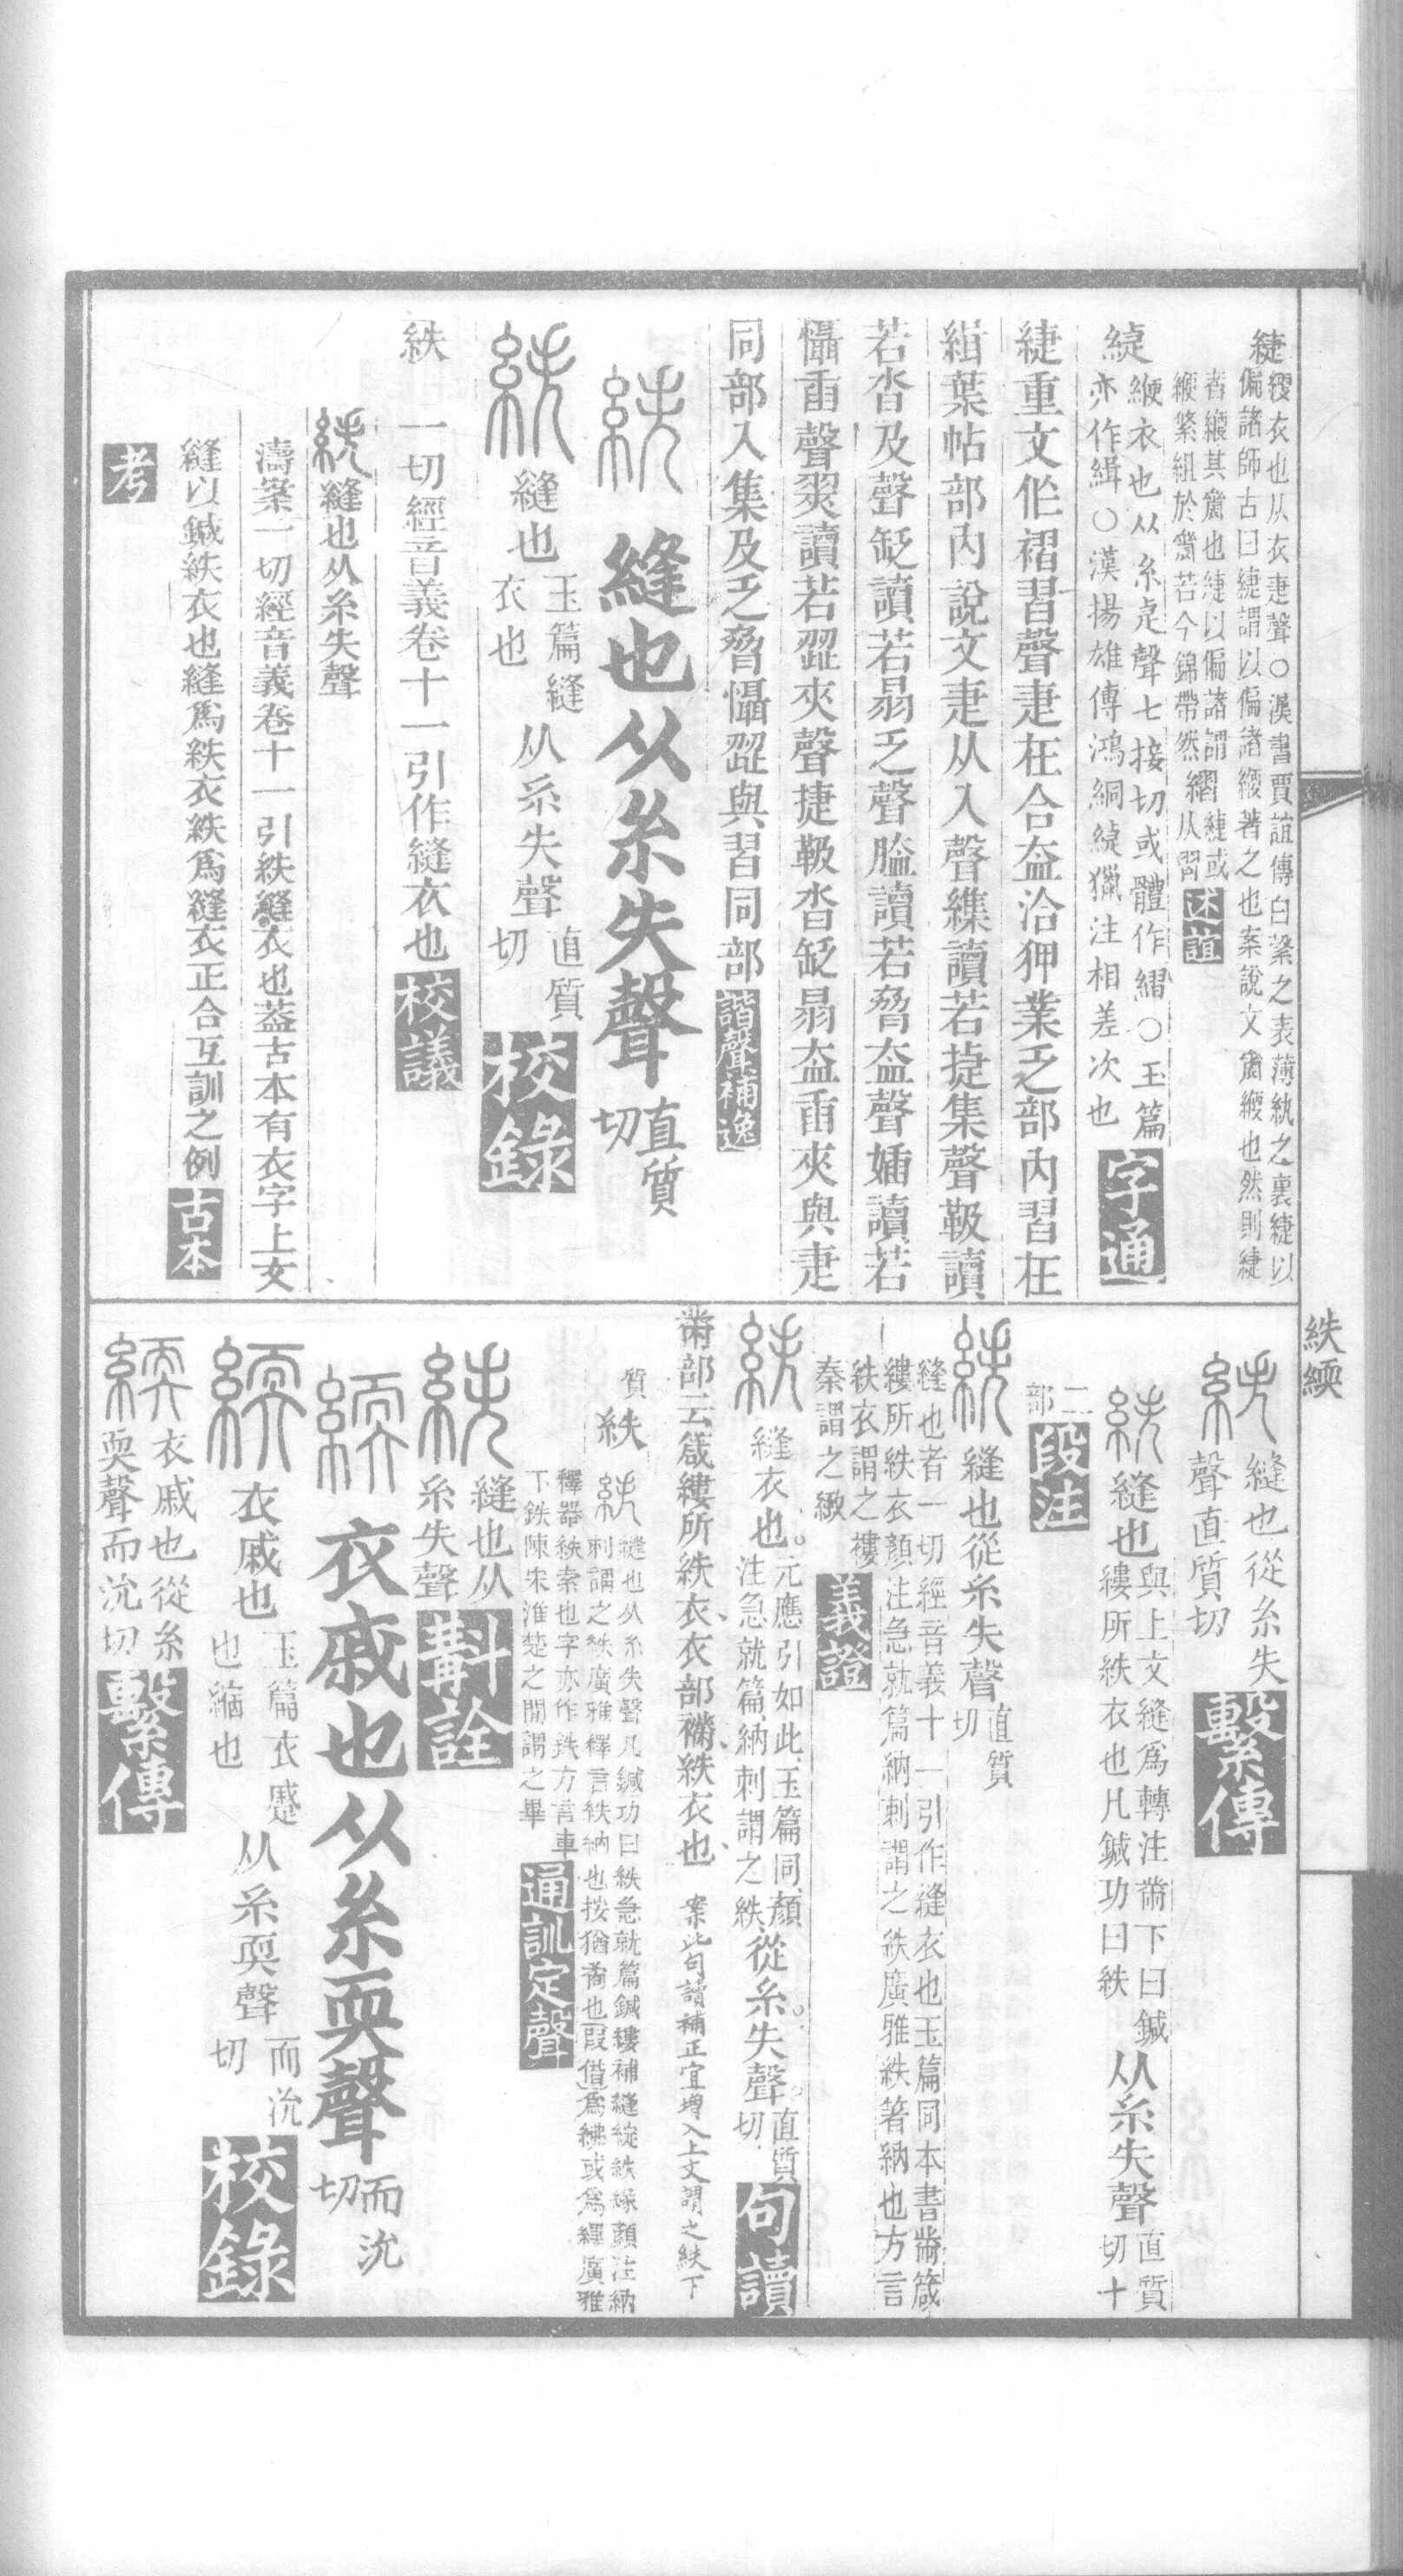 緁緶衣也从衣疌聲○漢書賈誼傳白縠之表薄紈之裏緁以
偏諸師古曰緁謂以偏諸緶著之也案說文緶也然則緁
者緶其也緁以偏諸謂
緶繁組於若今錦帶然緁或从習述誼
緁衣也从糸疌聲七接切或體作○玉篇
亦作緝○漢揚雄傳鴻絅緁獵注相差次也字通
緁重文作褶習聲疌在合盍洽狎業乏部內習在
緝葉帖部內說文疌从入聲讀若捷集聲讀
若沓及聲讀若乏聲讀若脅盍聲讀若
懾臿聲讀若澀夾聲捷沓盍臿夾與疌
同部入集及乏脅懾澀與習同部諧聲補逸
紩縫也从糸失聲直質切
紩縫也玉篇縫衣也从糸失聲直質切校錄
紩一切經音義卷十一引作縫衣也校議
紩縫也从糸失聲
濤案一切經音義卷十一引紩縫衣也蓋古本有衣字上文
縫以鍼紩衣也縫爲紩衣紩爲縫衣正合互訓之例古本
考
紩緛
紩縫也從糸失
聲直質切繫傳
紩縫也與上文縫爲轉注黹下曰鍼
縷所紩衣也凡鍼功曰紩从糸失聲直質切十
二部段注
紩縫也從糸失聲直質切
縫也者一切經音義十一引作縫衣也玉篇同本書黹箴
縷所紩衣顏注急就篇納刺謂之紩廣雅紩著納也方言
紩衣謂之褸
秦謂之緻義證
紩縫衣也元應引如此玉篇同顏
注急就篇納刺謂之紩從糸失聲直質切句讀
黹部云箴縷所紩衣衣部紩衣也案此句讀補正宜增入上文謂之紩下
質紩
紩縫也从糸失聲凡鍼功曰紩急就篇鍼縷補縫綻紩緣顏注納
刺謂之紩廣雅釋言紩納也按猶黹也叚借爲紼或爲繹廣雅
釋器紩索也字亦作鉄方言車
下鉄陳宋淮楚之閒謂之畢通訓定聲
紩縫也从
糸失聲斠詮
緛衣戚也从糸耎聲而沇切
緛衣戚也玉篇衣蹙也縮也从糸耎聲而沇切校錄
緛衣戚也從糸
耎聲而沇切繫傳